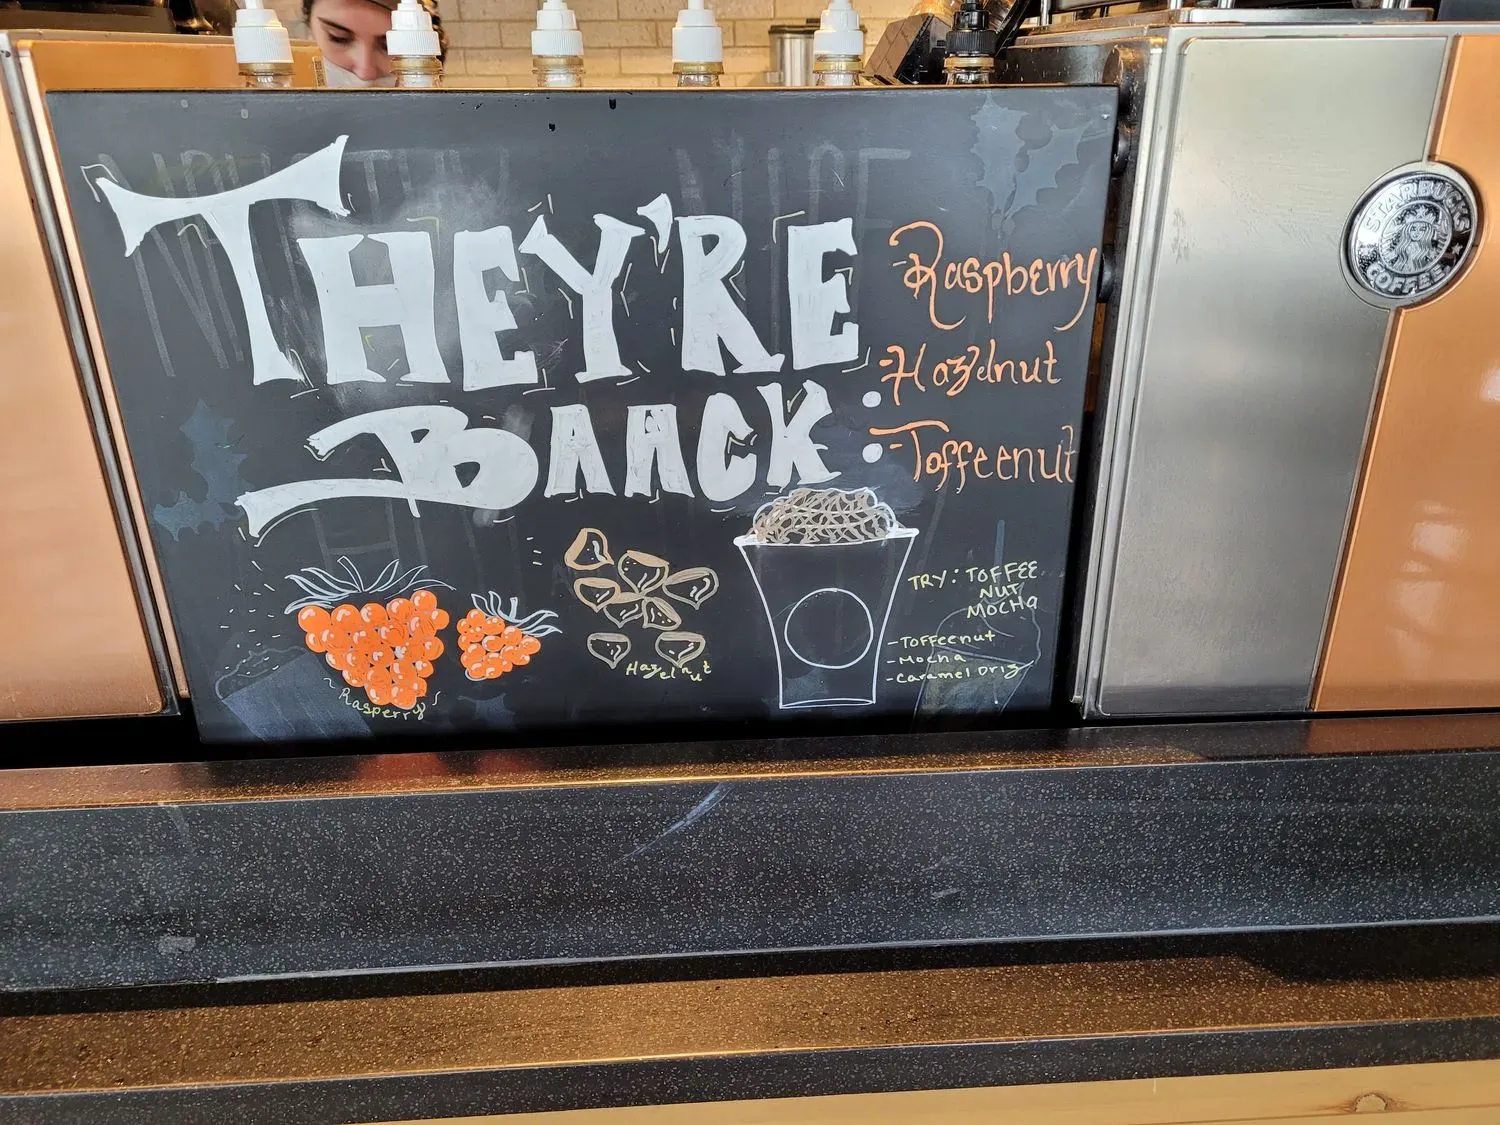 THEY'RE
BAAACK:
-Raspberry
-Hazelnut
-Toffeenut
TRY: TOFFEE
NUT
MOCHA
-Toffeenut
-Mocha
-Caramel Driz
Raspberry
Hazelnut
STARBUCKS
COFFEE